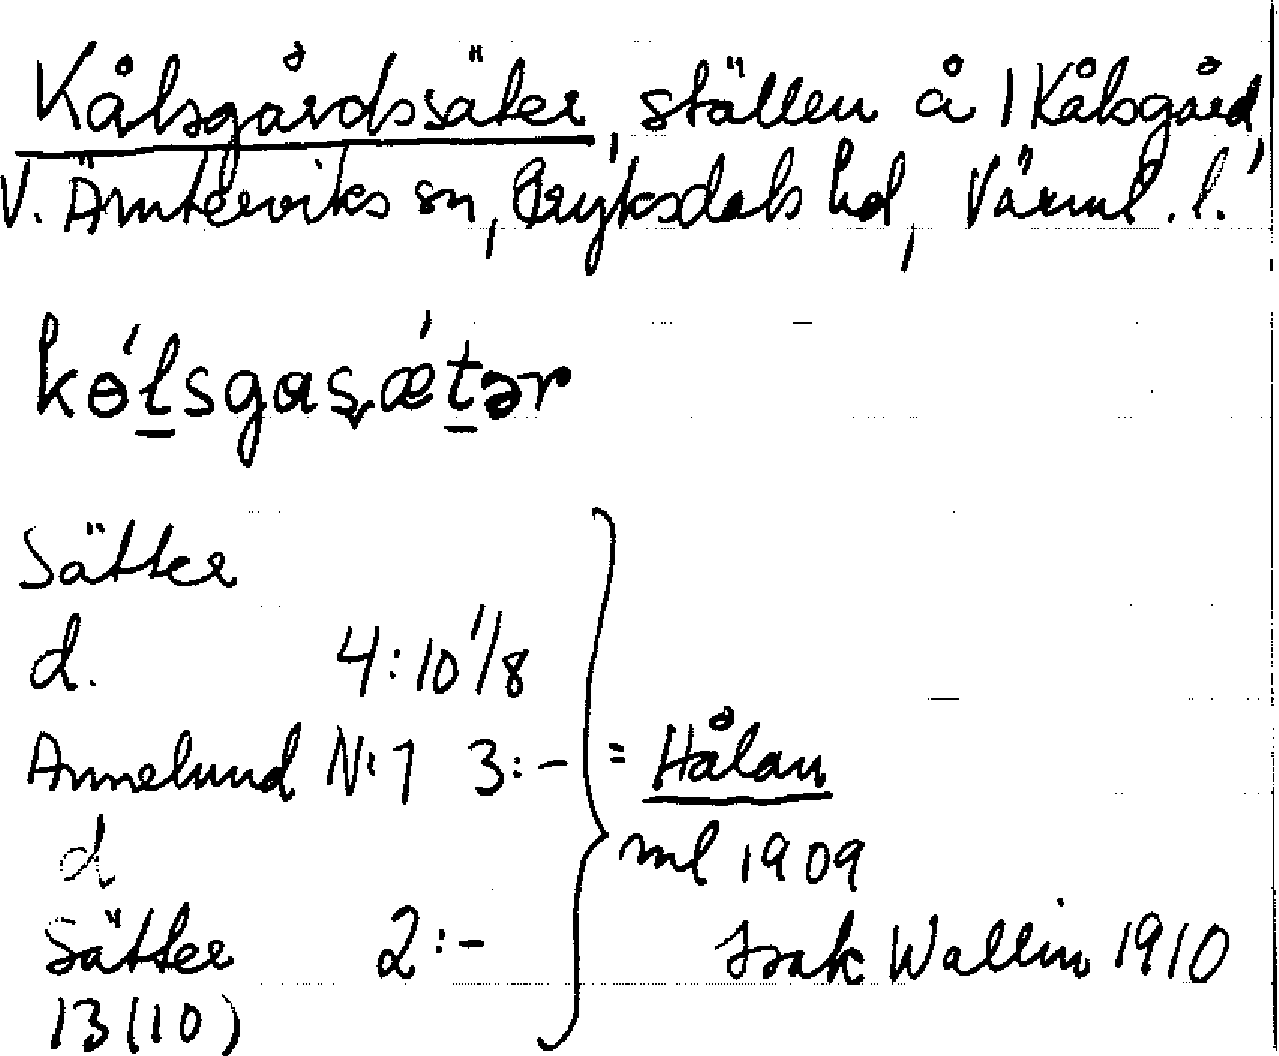 Kålsgårdssäter, ställen å 1 Kålsgård,
V. Ämterviks sn, Fryksdals hd, Värml. l.
kɵ́ɫsgaʂǽtər
Sätter
d. 4:10 1/8
Annelund N:1 3:- = Hålan
d ml 1909
Sätter 2:- Isak Wallin 1910
13(10)